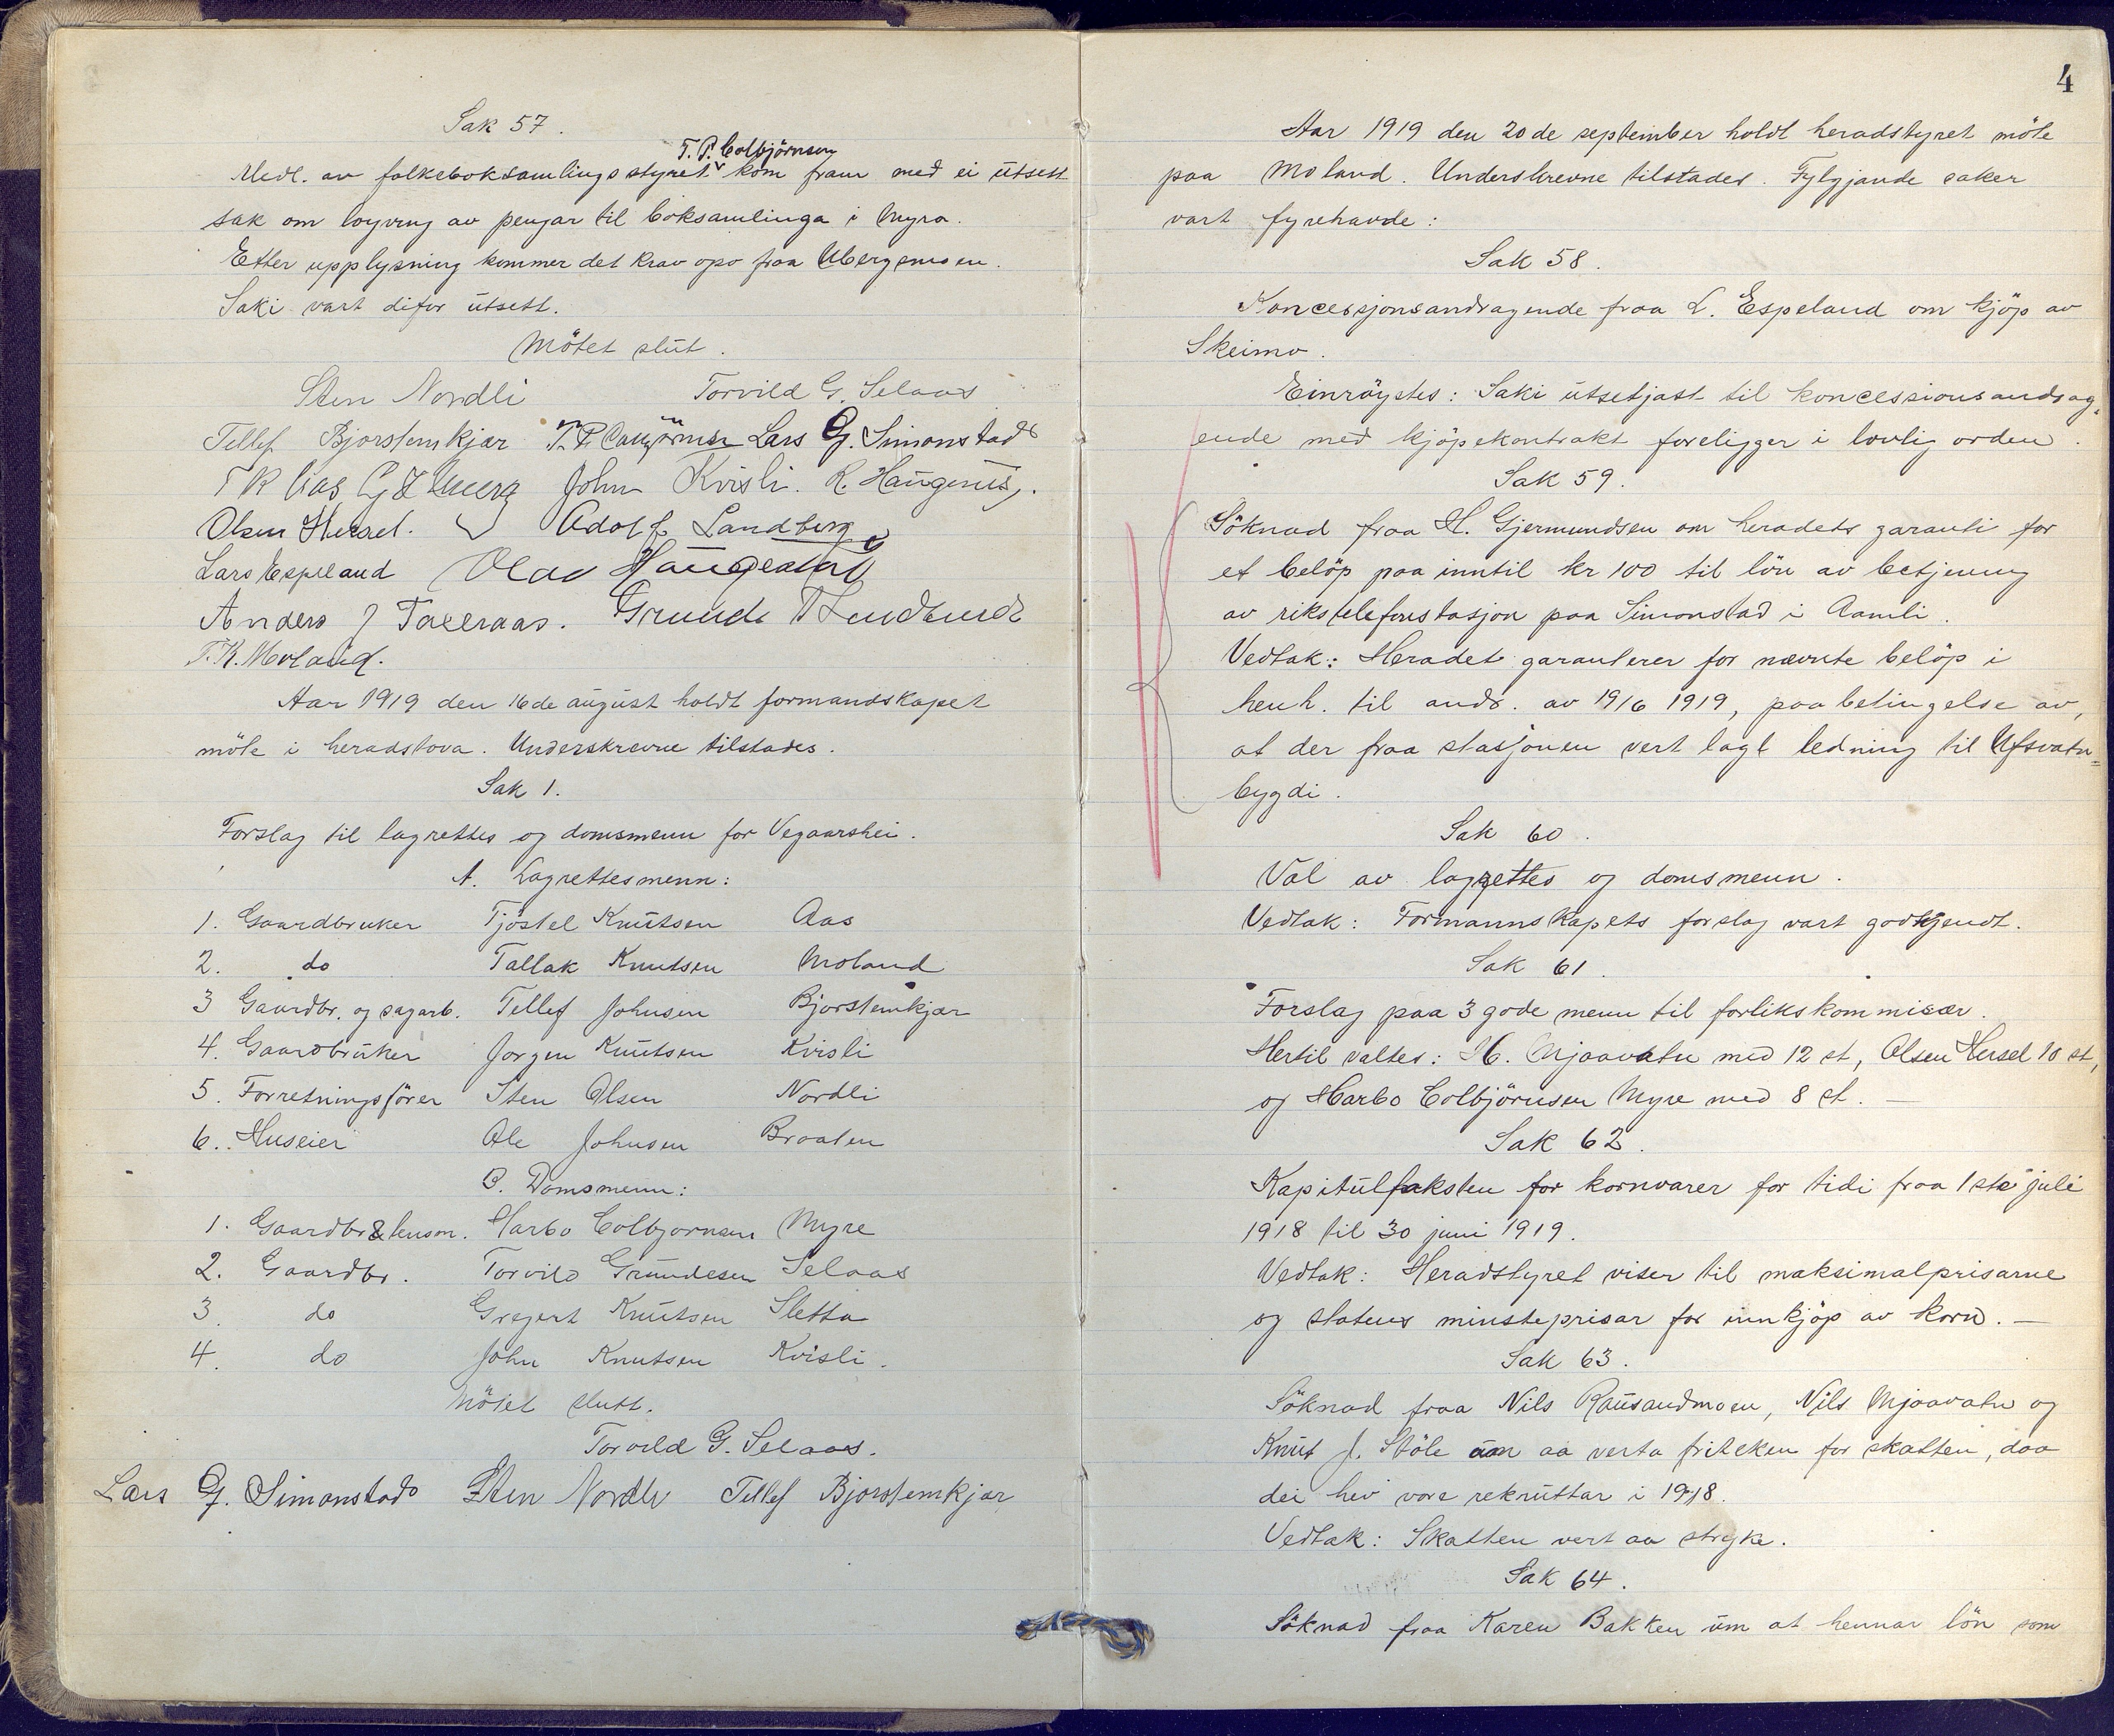 Sak 57.
T. P. Colbjörnsen
Medl. av folkeboksamlingsstyret kom fram med ei utsett
sak om loyving av pengar til boksamlinga i Myra.
Etter upplysning kommer det krav opo fraa Ubergsmoen.
Saki vart difor utsett.
Mötet slut.
Sten Nordli Torvild G. Selaas
Tellef Bjorstemkjær T. P. Colbjörnsen Lars G. Simonstad
T K Aas John Kvisli. K. Haugenes,.
Olsen Hersel. Adolf Landberg
Lars Espeland Olav Haugeaas
Anders J Taxeraas. Grunde T Lindtveit
T. K. Moland.
Aar 1919 den 16de august holdt formandskapet
möte i heradstova. Underskrevne tilstades.
Sak 1.
Forslag til lagrettes og domsmenn for Vegaarshei.
A. Lagrettesmenn:
1. Gaardbruker Tjöstel Knutsen Aas
2. do Tallak Knutsen Moland
3 Gaardbr. og sagarb. Tellef Johnsen Bjorstemkjær
4. Gaardbruker Jorgen Knutsen Kvisli
5. Forretningsförer Sten Olsen Nordli
6. Huseier Ole Johnsen Braaten
B. Domsmenn:
1. Gaardbr & lensm. Harbo Colbjornsen Myre
2. Gaardbr. Torvild Grundesen Selaas
3. do Gregert Knutsen Sletta
4. do John Knutsen Kvisli.
Mötet slutt.
Torvild G. Selaas.
Lars G. Simonstad Sten Nordli Tellef Bjorstemkjær
4
Aar 1919 den 20de september holdt heradstyret möte
paa Moland. Underskrevne tilstades. Fylgjande saker
vart fyrehavde:
Sak 58.
Koncessjonsandragende fraa L. Espeland om kjöp av
Skeimo.
Einröystes: Saki utsetjast til koncessionsandrag-
ende med kjöpekontrakt foreligger i lovlig orden.
Sak 59.
Söknad fraa H. Gjermundsen om heradets garanti for
et belöp paa inntil kr 100 til lön av betjening
av rikstelefonstasjon paa Simonstad i Aamli.
Vedtak: Heradet garanterer for nævnte belöp i
henh. til andr. av 19/6 1919, paa betingelse av,
at der fraa stasjonen vert lagt ledning til Ufsvatn=
bygdi.
Sak 60.
Val av lagrettes og domsmenn.
Vedtak: Formannskapets forslag vart godkjendt.
Sak 61.
Forslag paa 3 gode menn til forlikskommisær.
Hertil valtes: N. Mjaavatn med 12 st, Olsen Hersel 10 st,
og Harbo Colbjörnsen Myre med 8 st. —
Sak 62.
Kapitultaksten for kornvarer for tidi fraa 1ste juli
1918 til 30 juni 1919.
Vedtak: Heradstyret viser til maksimalprisarne
og statens minsteprisar for innkjöp av korn. —
Sak 63.
Söknad fraa Nils Rausandmoen, Nils Mjaavatn og
Knut J. Stöle um aa verta friteken for skatten, daa
dei hev vore rekruttar i 1918.
Vedtak: Skatten vert aa stryke.
Sak 64.
Söknad fraa Karen Bakken um at hennar lön som